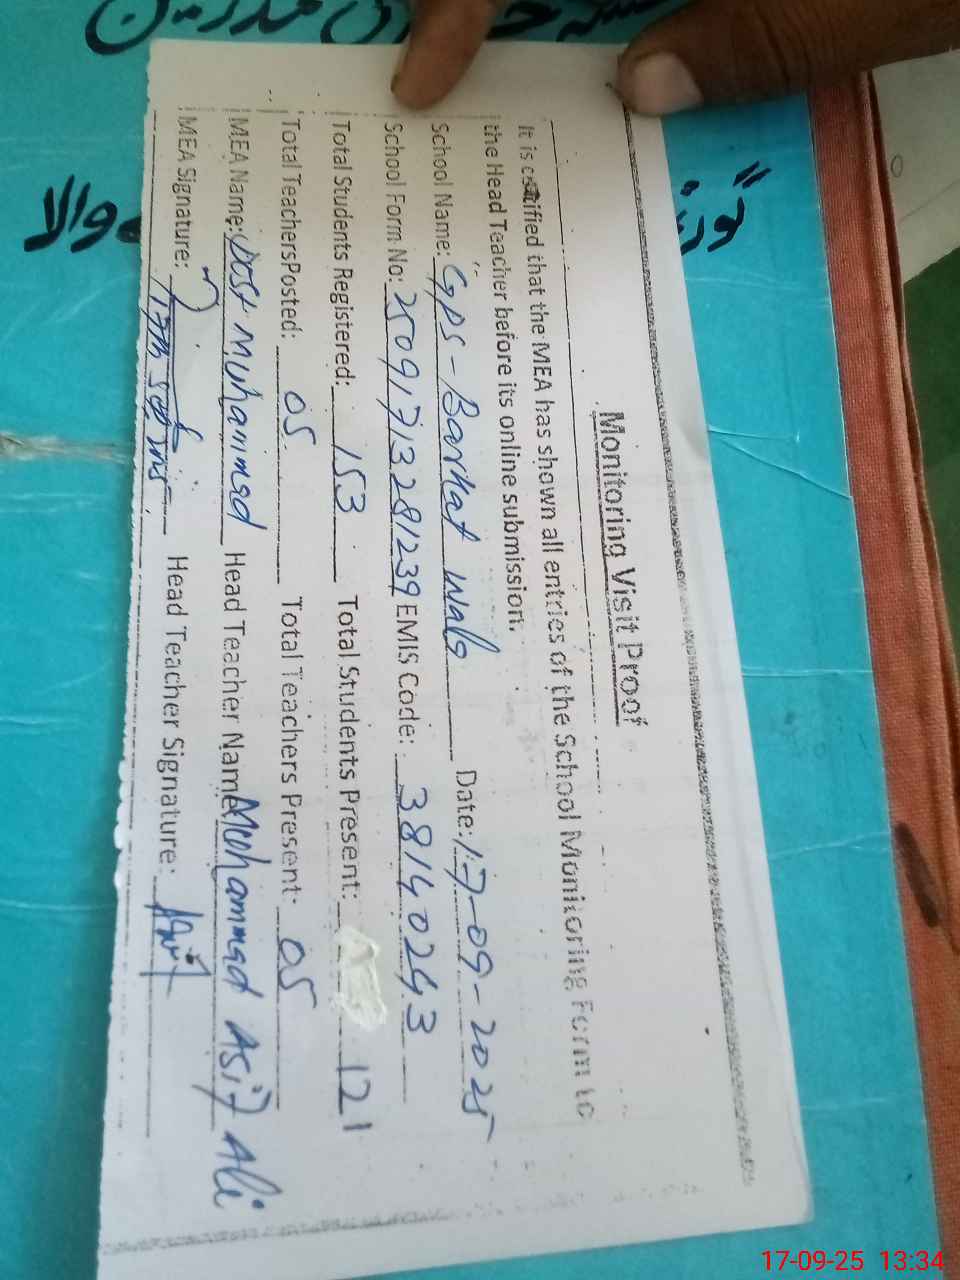 Monitoring Visit Proof
It is certified that the MEA has shown all entries of the School Monitoring Form to
the Head Teacher before its online submission.
School Name: GPS-Barkat wala Date: 17-09-2025
School Form No: 25091713281239 EMIS Code: 38140243
Total Students Registered: 153 Total Students Present: 121
Total TeachersPosted: 05 Total Teachers Present: 05
MEA Name: Dost Muhammad Head Teacher Name: Muhammad Asif Ali
MEA Signature: Head Teacher Signature: Asif
والا
17-09-25 13:34